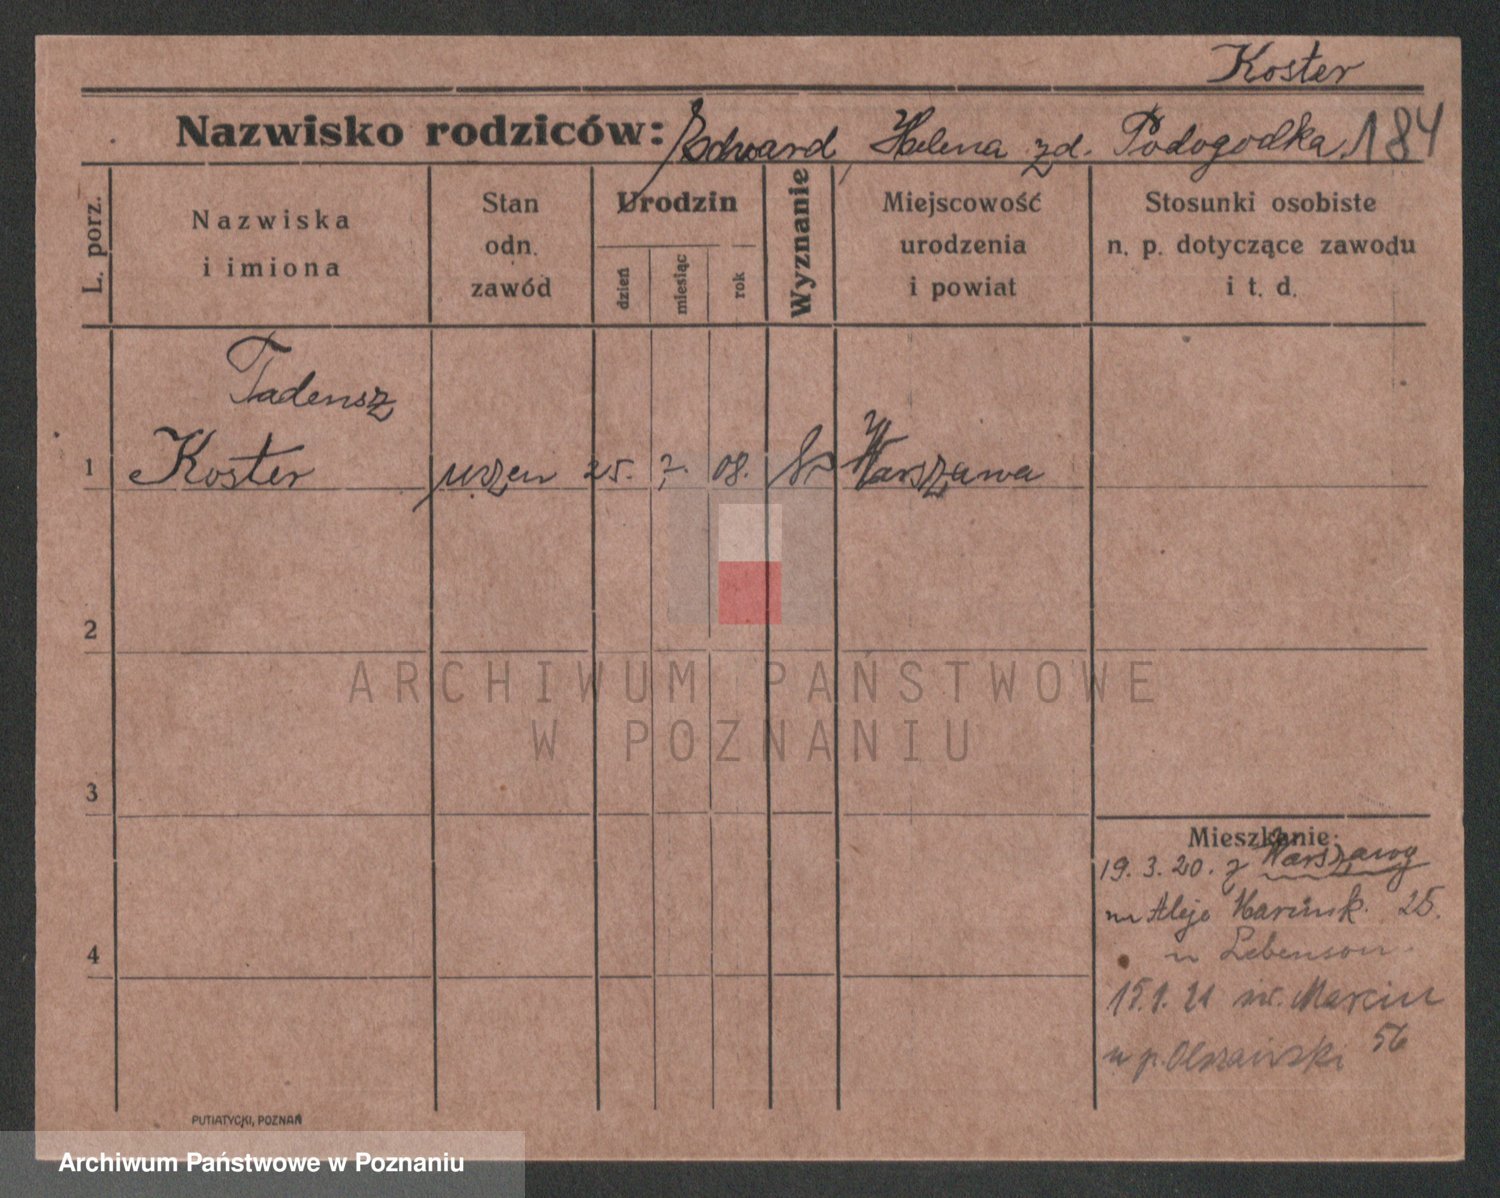 Koster
Nazwisko rodziców: Edward, Helena zd. Podogodka. 184
L. porz.
Nazwiska
i imiona
Stan
odn.
zawód
Urodzin
dzień
miesiąc
rok
Wyznanie
Miejscowość
urodzenia
i powiat
Stosunki osobiste
n. p. dotyczące zawodu
i t. d.
Tadeusz
1 Koster uczen 25. 7. 08. Warszawa
2
3
4
Mieszkanie:
19. 3. 20. z Warszawy
Aleje Marcink. 25.
u Lebenson
15.1.21 św. Marcin
56
u p.
PUTIATYCKI, POZNAŃ
ARCHIWUM PAŃSTWOWE
W POZNANIU
Archiwum Państwowe w Poznaniu